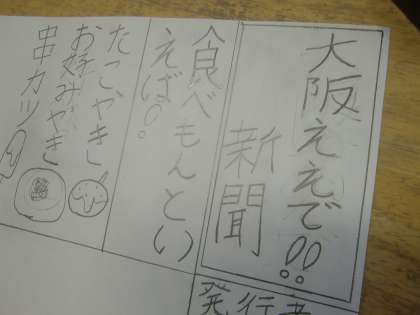 大阪ええで!!
新聞
食べもんとい
えば!!
たこやきし
お好みやき
串カツ
発行者